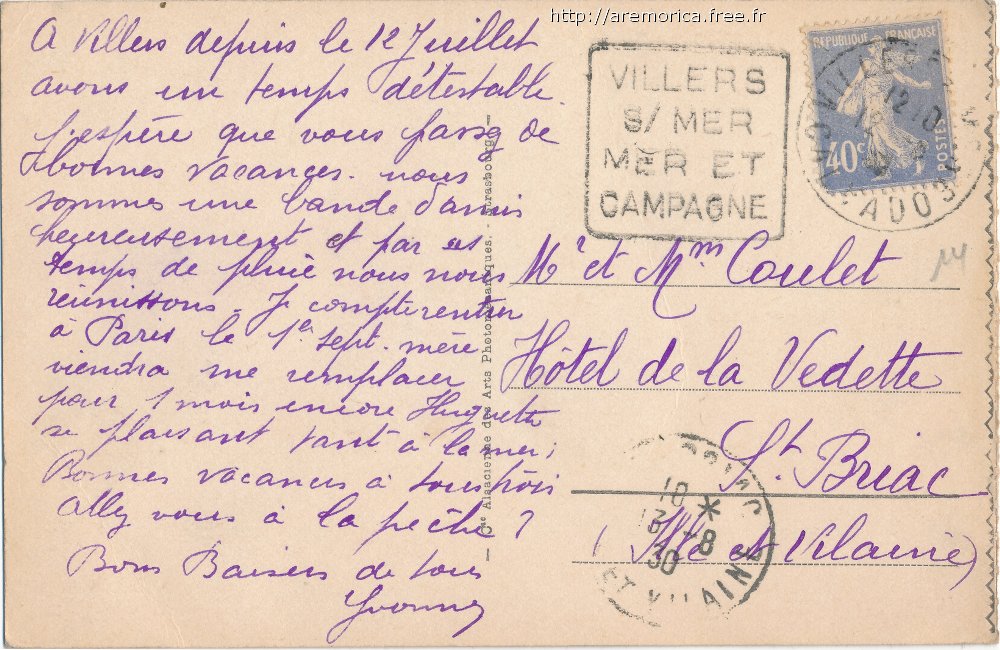 http://aremorica.free.fr
A Villers depuis le 12 Juillet
avons un temps détestable.
J'espère que vous passez de
bonnes vacances. nous
sommes une bande d'amis
heureusement et par es
temps de pluie nous nous
réunissons. Je compte rentrer
à Paris le 1er sept. mère
viendra me remplacer
pour 1 mois encore Huguette
se plaisant tant à la mer;
Bonnes vacances à tous trois
Allez vous à la pêche ?
Bons Baisers de tous
Yvonne
Cie Alsacienne des Arts Photomécaniques. - Strasbourg
VILLERS
S/ MER
MER ET
CAMPAGNE
REPUBLIQUE FRANÇAISE
40c
POSTES
12 10
CALVADOS
Mr et Mm Coulet
Hôtel de la Vedette
St. Briac
(Ille et Vilaine)
10 *
13 -8
30
ET VILAINE